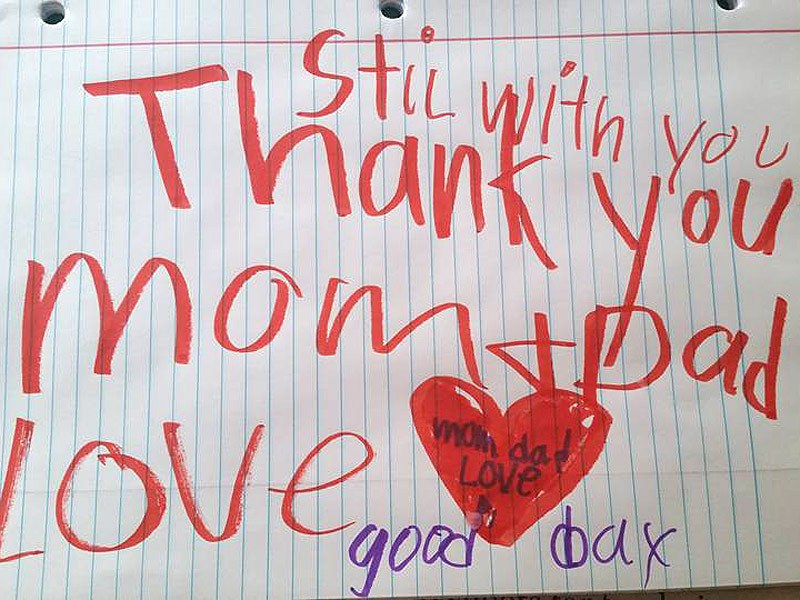 Stil with you
Thank you
mom + Dad
Love
mom dad
Love
good bax